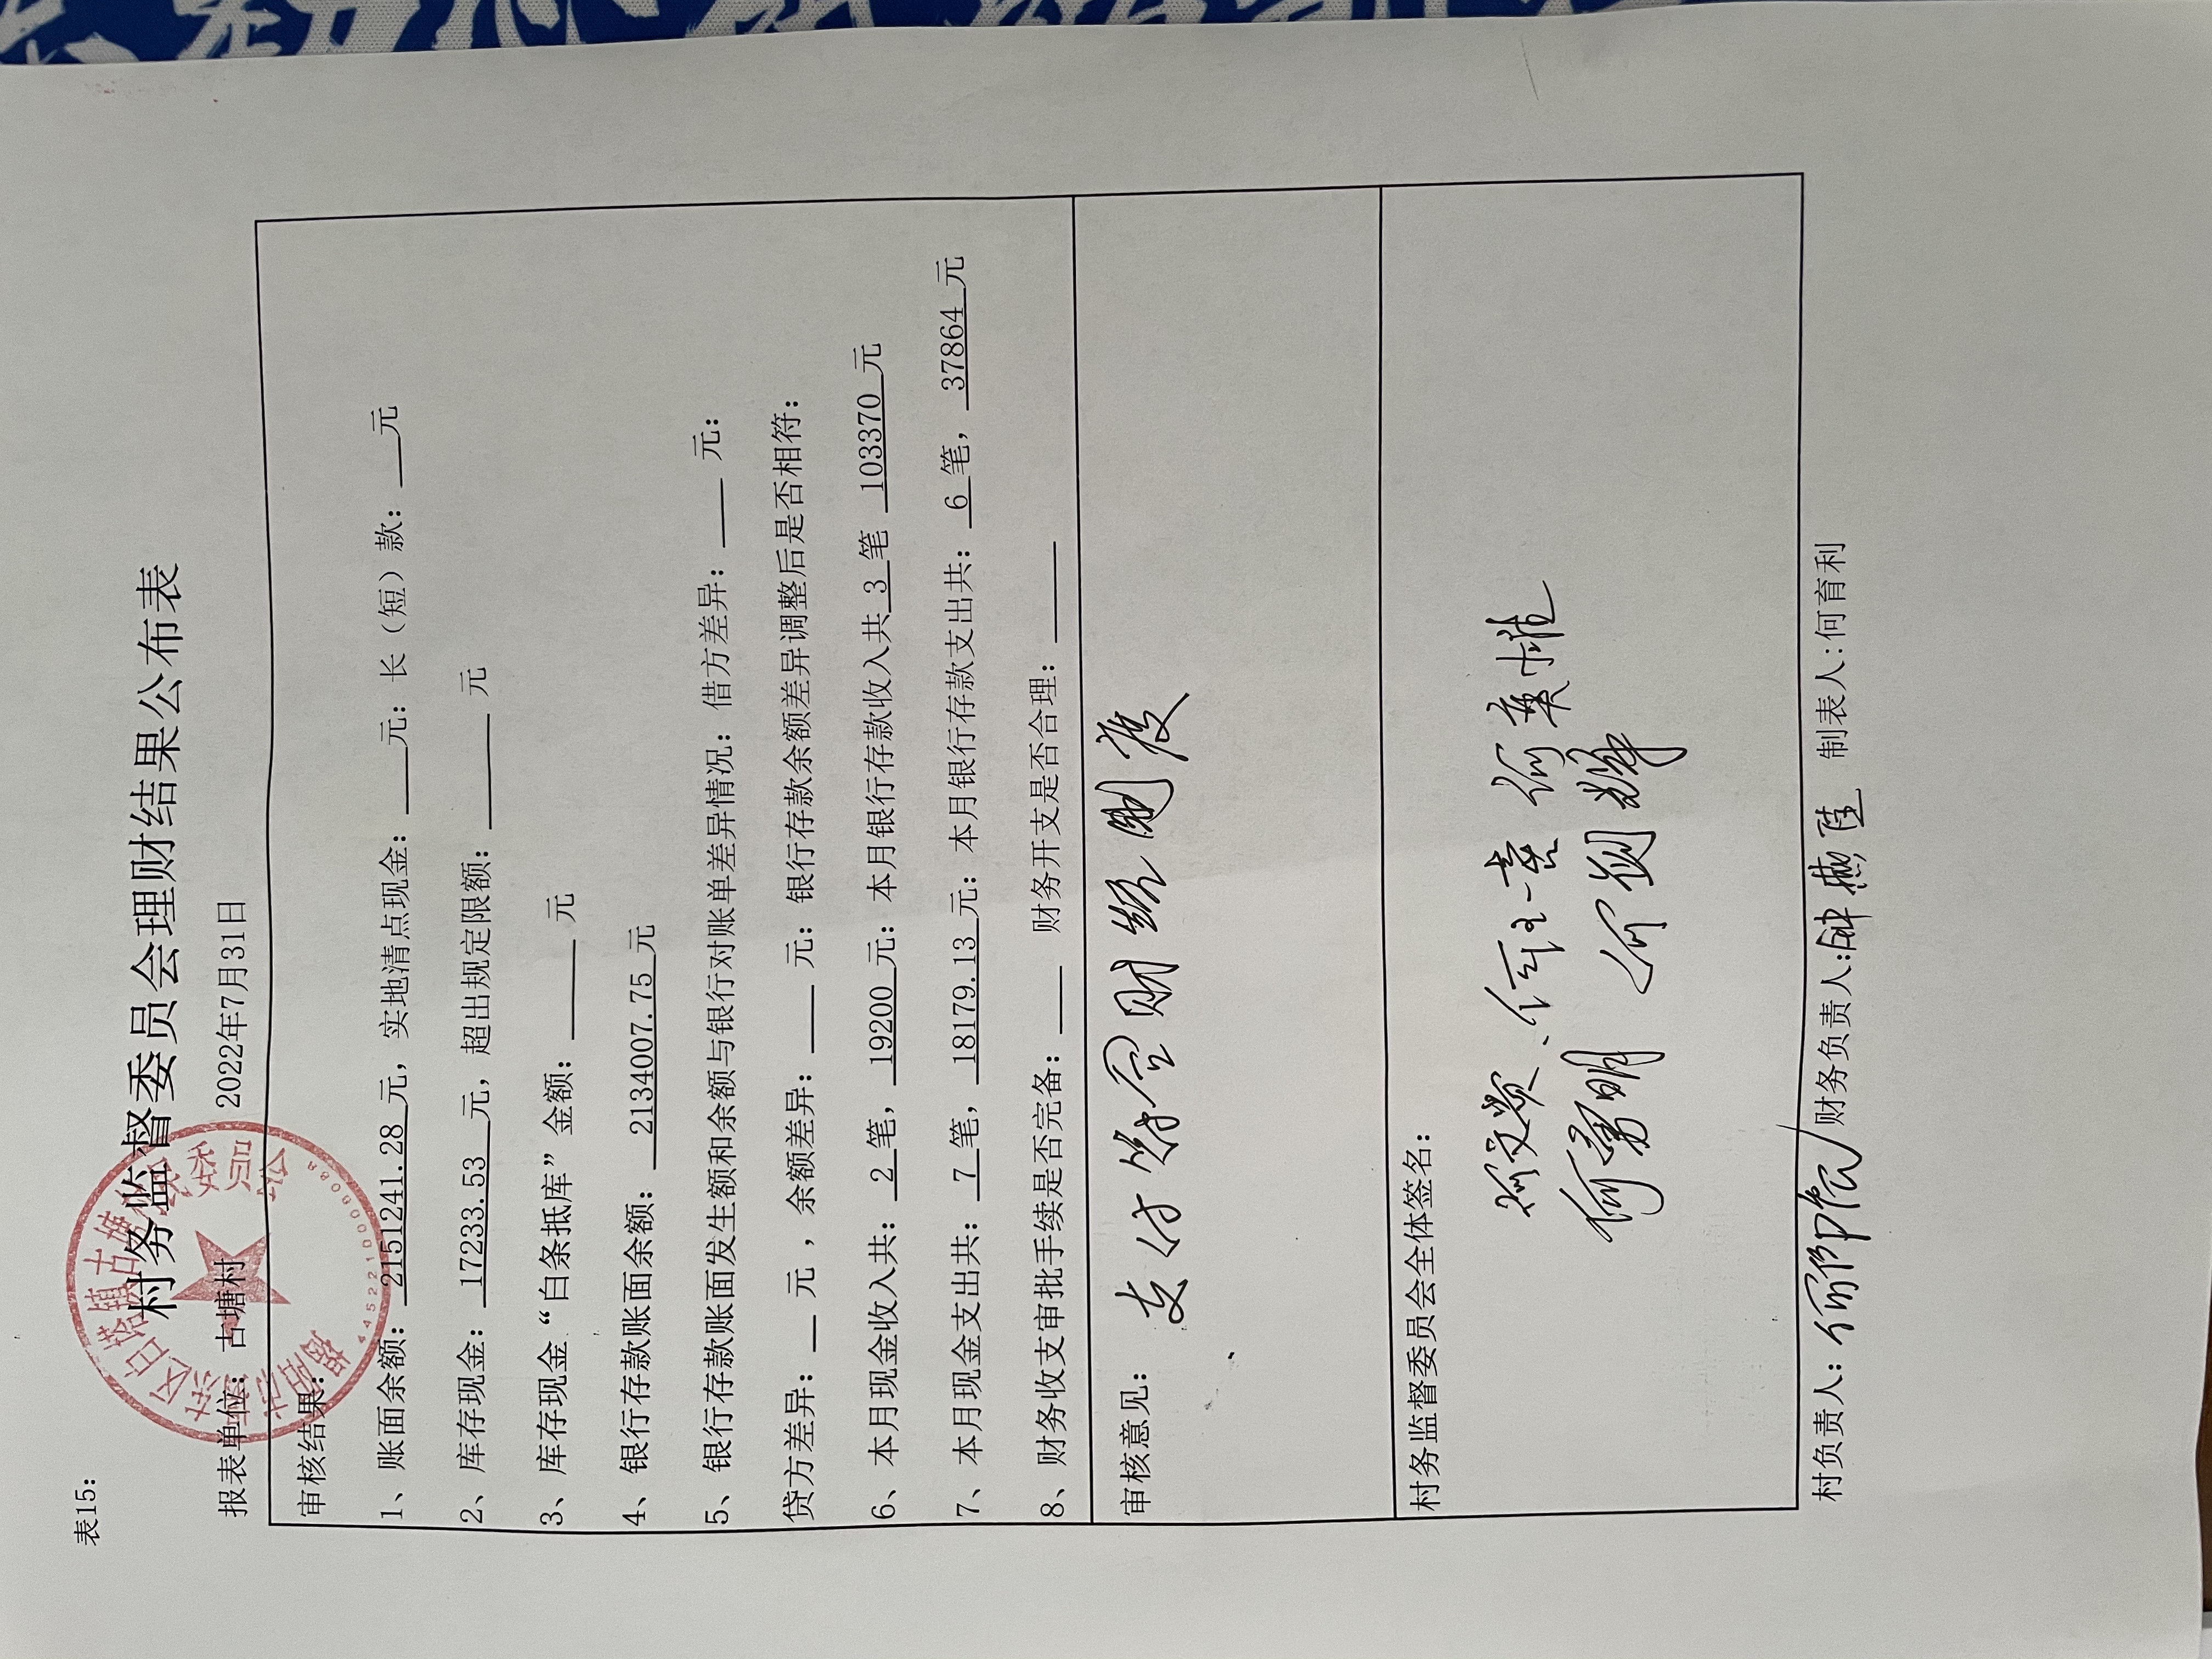 表15：
村务监督委员会理财结果公布表
报表单位：古塘村 2022年7月31日
审核结果：
1、账面余额：2151241.28元，实地清点现金：____元：长（短）款：___元
2、库存现金：17233.53元，超出规定限额：______元
3、库存现金“白条抵库”金额：_____元
4、银行存款账面余额：2134007.75元
5、银行存款账面发生额和余额与银行对账单差异情况：借方差异：____元：
贷方差异：___元，余额差异：____元：银行存款余额差异调整后是否相符：
6、本月现金收入共：2笔，19200元：本月银行存款收入共3笔 103370元
7、本月现金支出共：7笔，18179.13元：本月银行存款支出共：6笔，37864元
8、财务收支审批手续是否完备：____ 财务开支是否合理：_____
审核意见：
支付符合财经制度
村务监督委员会全体签名：
何勇明
村负责人： 财务负责人： 制表人：何育利
4452210000088